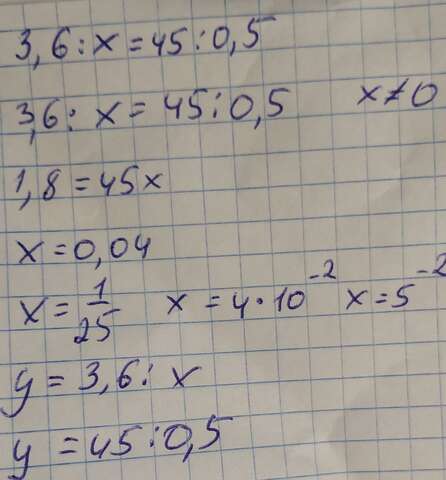 3,6 : x = 45 : 0,5
3,6 : x = 45 : 0,5 x ≠ 0
1,8 = 45x
x = 0,04
x = 1/25 x = 4 · 10⁻² x = 5⁻²
y = 3,6 : x
y = 45 : 0,5